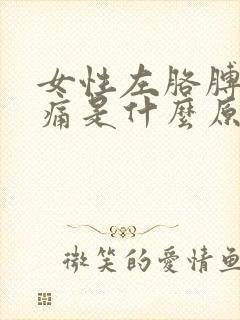 女性左胳膊
痛是什麼原
微笑的愛情魚